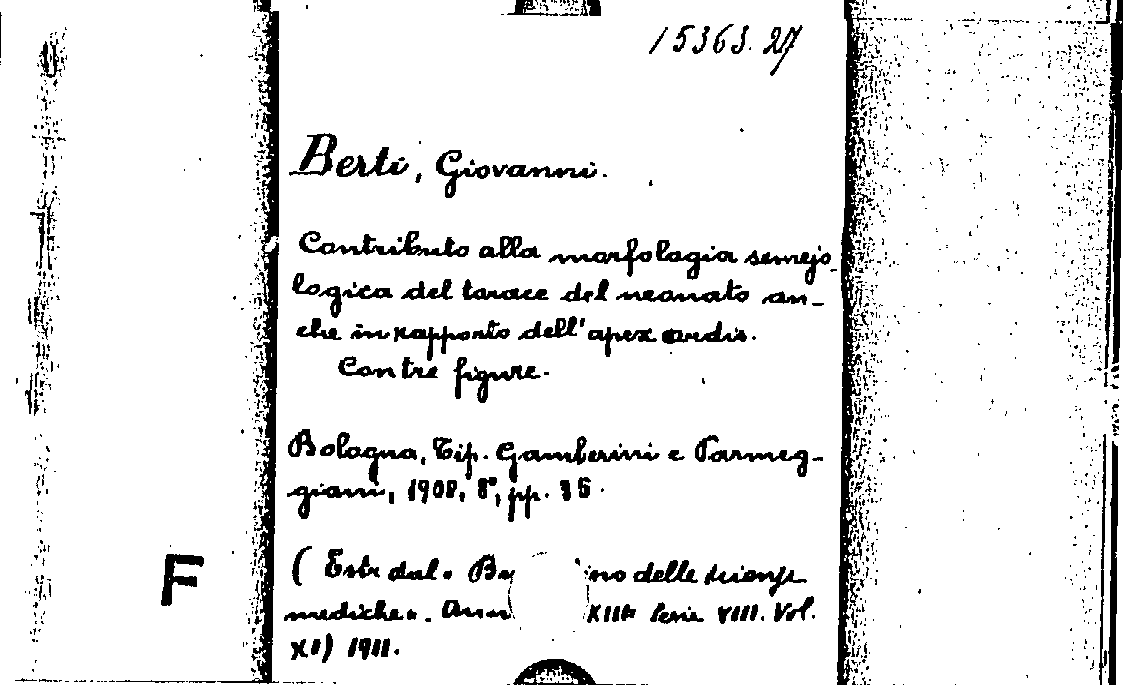 15363.27
Berti, Giovanni.
Contributo alla morfologia semejo-
logica del torace del neonato an-
che in rapporto dell'apex cordis.
Con tre figure.
Bologna, Tip. Gamberini e Parmeg-
giani, 1908, 8°, pp. 36.
(Estr dal « B no delle scienze
mediche». Ann XIII Serie VIII. Vol.
XI) 1911.
F